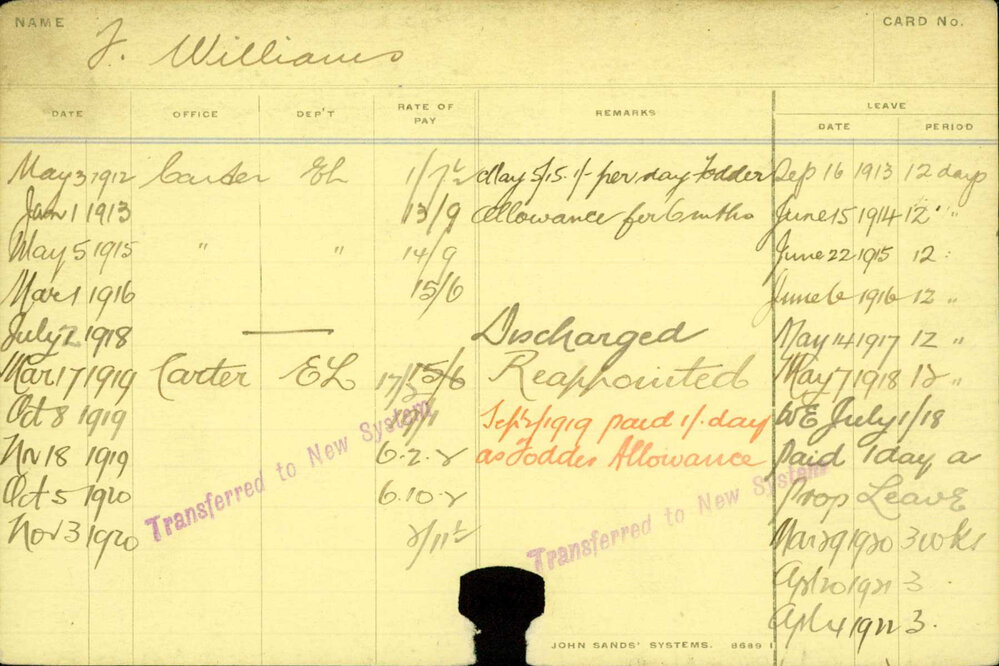 NAME
CARD NO.
Williams
DATE OFFICE DEP'T RATE OF PAY REMARKS LEAVE
DATE PERIOD
May 3 1912 Carter EL May 5/15. 1/- per day Fodder Sep 16 1913 12 days
Jan 1 1913 13/9 Allowance for 6 mths June 15 1914 12 " "
May 5 1915 " " 14/9 June 22 1915 12
Mar 1 1916 15/6 June 6 1916 12 "
July 2 1918 Discharged May 14 1917 12 "
Mar 17 1919 Carter EL 15/6 Reappointed May 7 1918 12 "
Oct 8 1919 1919 paid 1/- day WE July 1/18
Nov 18 1919 6.2.2 as Fodder Allowance paid 1 day a
Oct 5 1920 6.10.2 Prop Leave
Nov 3 1920 Mar 29 1920 3 wks
Apl 20 1921 3
Apl 4 1922 3.
Transferred to New System
Transferred to New System
JOHN SANDS' SYSTEMS. 8689